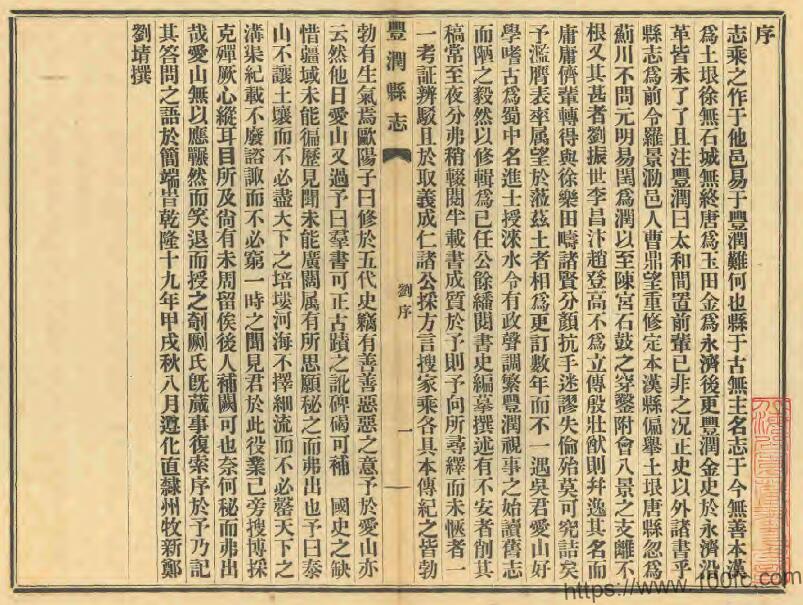 序
志乘之作于他邑易于豐潤難何也縣于古無主名志于今無善本漢
爲土垠徐無石城無終唐爲玉田金爲永濟後更豐潤金史於永濟沿
革皆未了了且注豐潤曰太和間置前輩已非之况正史以外諸書乎
縣志爲前令羅景泐邑人曹鼎望重修定本漢縣偏舉土垠唐縣忽爲
薊川不問元明易閏爲潤以至陳宮石鼓之穿鑿附會八景之支離不
根又其甚者劉振世李昌汴趙登高不爲立傳殷壯猷則幷逸其名而
庸庸儕輩轉得與徐樂田疇諸賢分顏抗手迷謬失倫殆莫可究詰矣
予濫膺表率属望於蒞茲土者相爲更訂數年而不一遇吳君愛山好
學嗜古爲蜀中名進士授淶水令有政聲調繁豐潤視事之始讀舊志
而陋之毅然以修輯爲已任公餘繙閱書史編摹撰述有不安者削其
稿常至夜分弗稍輟閱半載書成質於予則予向所尋繹而未愜者一
一考証辨駁且於取義成仁諸公採方言搜家乘各具本傳紀之皆勃
豐潤縣志
劉序
一
勃有生氣焉歐陽子曰修於五代史竊有善善惡惡之意予於愛山亦
云然他日愛山又過予曰羣書可正古蹟之訛碑碣可補 國史之缺
惜疆域未能徧歷見聞未能廣闊属有所思願秘之而弗出也予曰泰
山不讓土壤而不必盡天下之培塿河海不擇細流而不必罄天下之
溝渠紀載不廢諮諏而不必窮一時之聞見君於此役業已旁搜博採
克殫厥心縱耳目所及尙有未周留俟後人補闕可也奈何秘而弗出
哉愛山無以應囅然而笑退而授之剞劂氏旣蕆事復索序於予乃記
其答問之語於簡端旹乾隆十九年甲戌秋八月遵化直隸州牧新鄭
劉埥撰
https://www.100fc.com